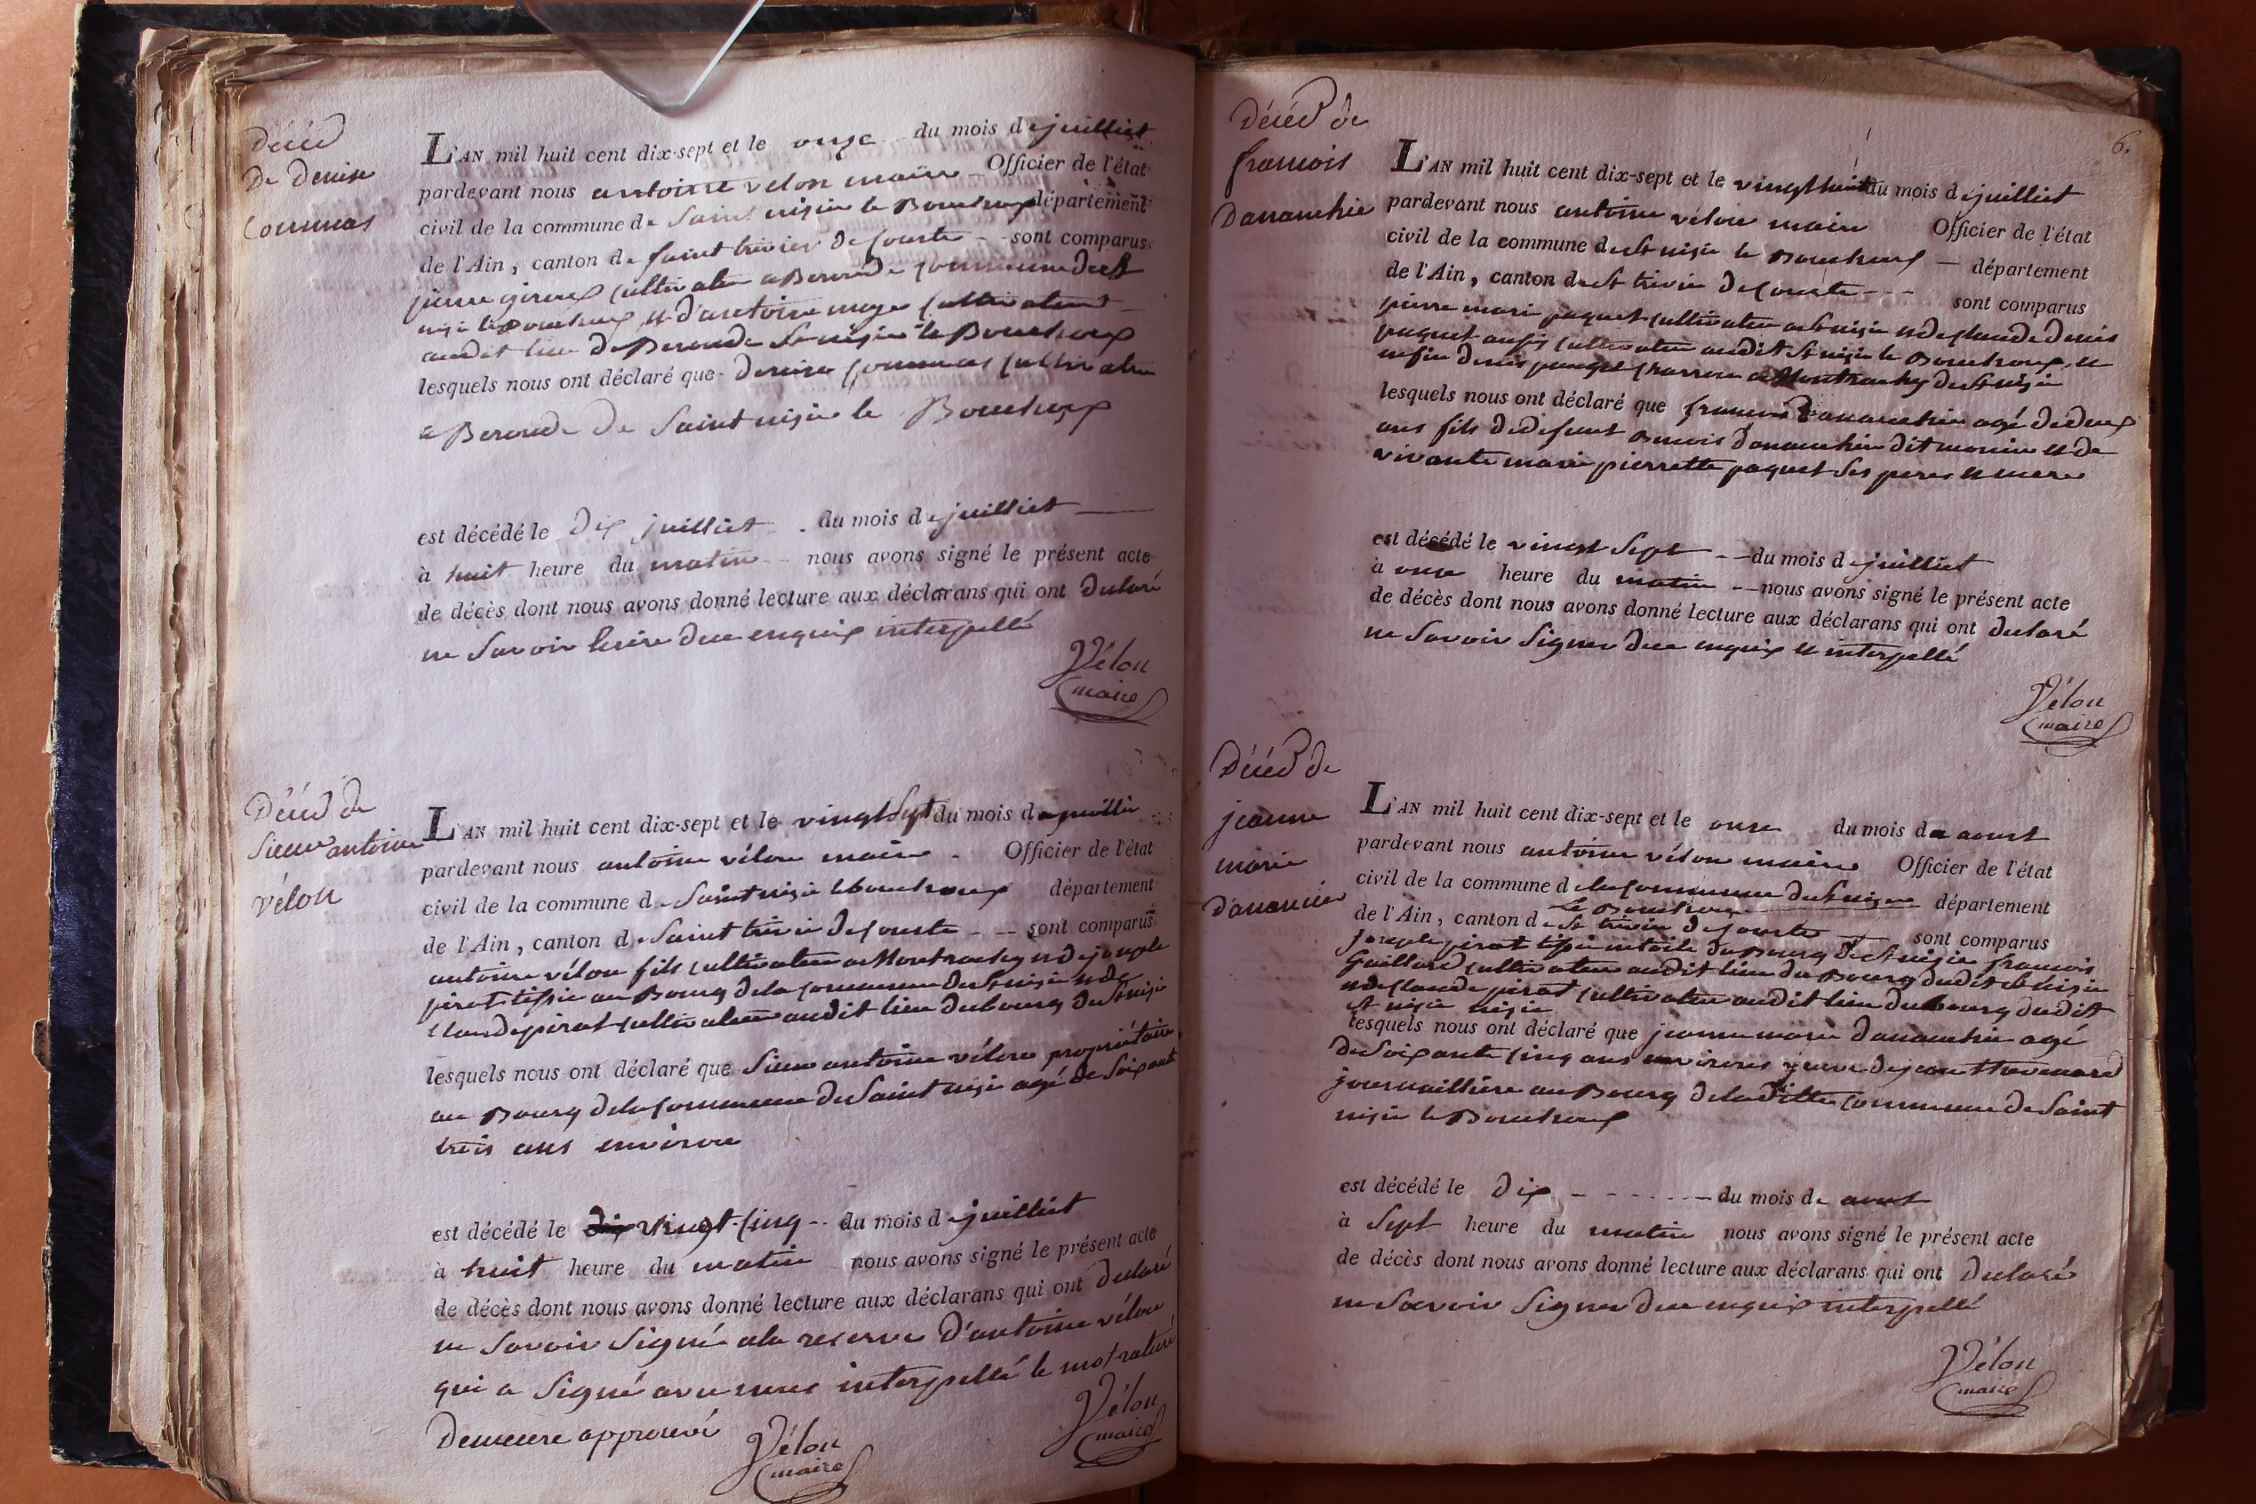 Décéd
De Denise
Commas
L'AN mil huit cent dix-sept et le onze du mois de juilliet
pardevant nous antoine vélon maire Officier de l'état
civil de la commune de Saint nizier le Bouchoux département
de l'Ain, canton de saint trivier de Courtes - - sont comparus
pierre cultivateur a Beroude commune de St
nizier le Bouchoux et d'antoine cultivateur
audit lieu de Beroude St nizier le Bouchoux
lesquels nous ont déclaré que Denise Commas cultivatrice
a Beroude De Saint nizier le Bouchoux
est décédé le Dix juilliet du mois de juilliet
à huit heure du matin nous avons signé le présent acte
de décès dont nous avons donné lecture aux déclarans qui ont déclaré
ne Savoir due enquis interpellé
Vélon
maire
Décéd de
Sieur antoine
vélon
L'AN mil huit cent dix-sept et le vingt Sept du mois de juillie
pardevant nous antoine vélon maire Officier de l'état
civil de la commune de Saint nizié le bouchoux département
de l'Ain, canton de Saint trivié de Courte - - sont comparus
antoine vélon fils cultivateur a Montrachy et de joseph
pirat tissié au Bourg de la commune de St nizié et de
claude pirat cultivateur audit lieu du bourg de St nizié
lesquels nous ont déclaré que Sieur antoine vélon propriétaire
au Bourg de la commune de Saint nizié agé de Soixante
trois ans environ
est décédé le dix vingt-Cinq - - du mois de juilliet
à huit heure du matin nous avons signé le présent acte
de décès dont nous avons donné lecture aux déclarans qui ont déclaré
ne Savoir Signé a la reserve d'antoine vélon
qui a Signé avec nous interpellé le mot raturé
Demeure approuvé
Vélon
maire
Vélon
maire
6.
Décéd de
francois
Dananchié
L'AN mil huit cent dix-sept et le vingt huit du mois de juilliet
pardevant nous antoine vélon maire Officier de l'état
civil de la commune de St nizié le Bouchoux - département
de l'Ain, canton de St trivié de Courte - - - sont comparus
pierre marie paquet cultivateur a St nizié et de claude denis
paquet aussi cultivateur audit St nizié le Bouchoux, et
enfin denis paquet charron a Montrachy de St nizié
lesquels nous ont déclaré que francois Dananchié agé de deux
ans fils de defunt Dananchié dit monin et de
vivante marie pierrette paquet Ses peres et mere
est décédé le vingt Sept - - du mois de juilliet
à onze heure du matin - - nous avons signé le présent acte
de décès dont nous avons donné lecture aux déclarans qui ont déclaré
ne Savoir Signer due enquis et interpellé
Vélon
maire
Décéd de
jeanne
marie
Dananchié
L'AN mil huit cent dix-sept et le onze du mois de aoust
pardevant nous antoine vélon maire Officier de l'état
civil de la commune de la Commune de St nizier département
le Bouchoux
de l'Ain, canton de St trivié de Courte sont comparus
joseph pirat tissié en toile du Bourg de St nizié francois
Gaillard cultivateur audit lieu du Bourg dudit St nizié
et de claude pirat cultivateur audit lieu du bourg dudit
St nizié nizié
lesquels nous ont déclaré que jeanne marie Dananchié agé
de Soixante Cinq ans environs veuve de jean thevenard
journaillière au Bourg de la ditte Commune de Saint
nizié le Bouchoux
est décédé le dix - - - - - - du mois de aout
à Sept heure du matin nous avons signé le présent acte
de décès dont nous avons donné lecture aux déclarans qui ont déclaré
ne Savoir Signer due enquis interpellé
Vélon
maire